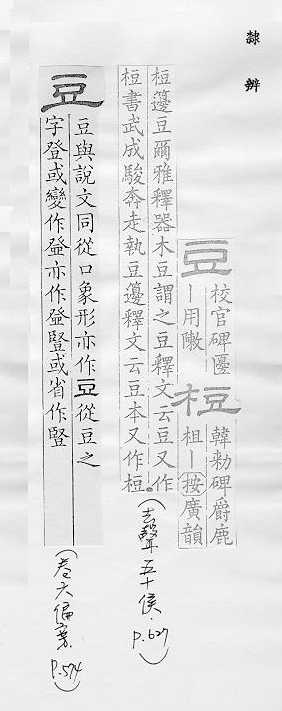 隸辨
豆 校官碑𨤲
丨用陳
梪 韓勑碑爵鹿
柤丨按廣韻
梪籩豆爾雅釋器木豆謂之豆釋文云豆又作
梪書武成駿奔走執豆籩釋文云豆本又作梪。
(去聲 五十侯. P.627)
豆
豆與說文同從口象形亦作豆從豆之
字登或變作豋亦作發豎或省作竪
(卷六偏旁. P.574)